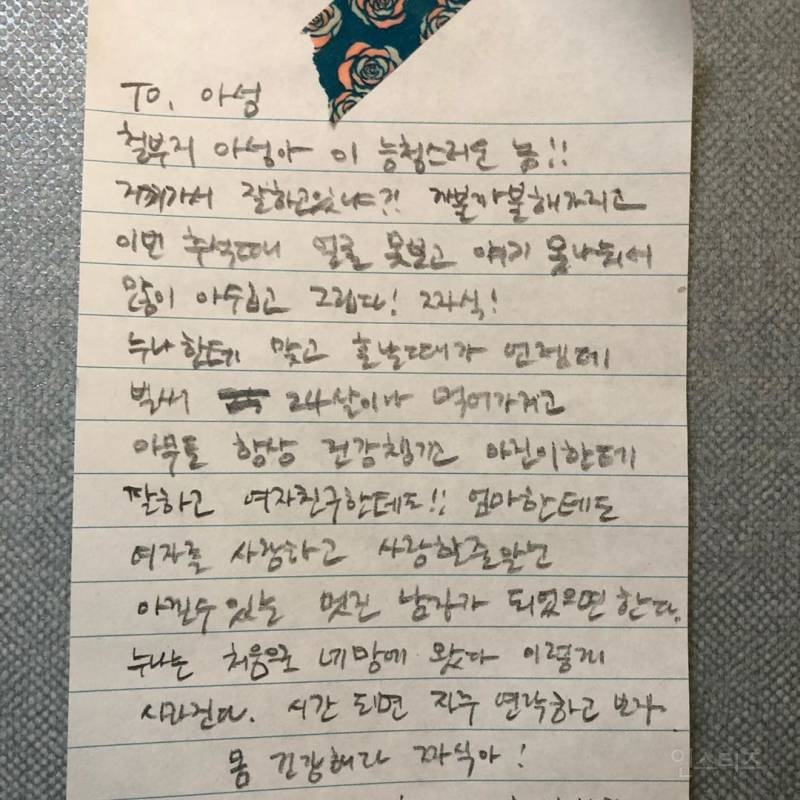 TO. 아성
철부지 아성아 이 능청스러운 놈!!
거기가서 잘하고있냐?! 까불까불해가지고
이번 추석때 얼굴 못보고 얘기 못나눠서
많이 아쉽고 그립다! 짜식!
누나한테 맞고 혼날때가 언젠데
벌써 24살이나 먹어가지고
아무튼 항상 건강챙기고 아진이한테
잘하고 여자친구한테도!! 엄마한테도
여자를 사랑하고 사랑할줄알고
아낄수있는 멋진 남자가 되었으면 한다.
누나는 처음으로 네 맘에 왔다 이렇게
사라진다. 시간 되면 자주 연락하고 보자.
몸 건강해라 짜식아!
인스티즈